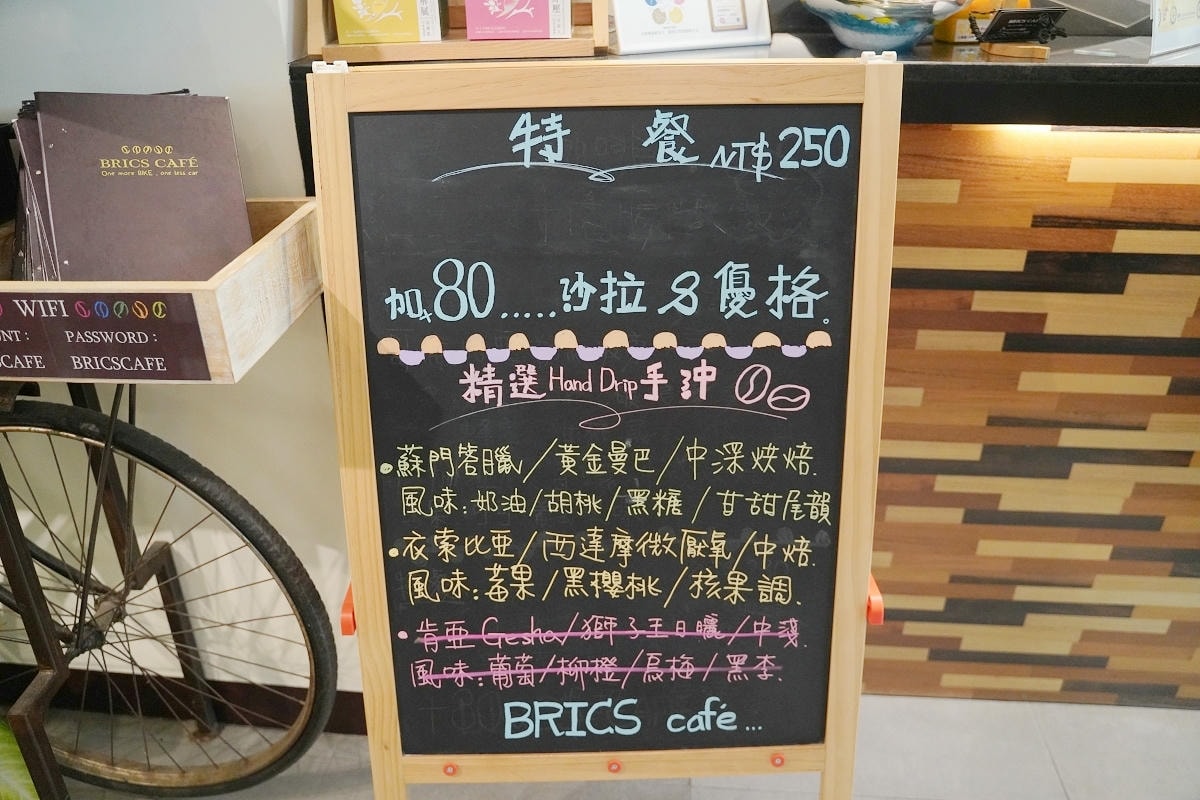 特 餐 NT$250
加+80.....沙拉&優格。
精選Hand Drip手沖
•蘇門答臘/黃金曼巴/中深烘焙.
風味:奶油/胡桃/黑糖/甘甜尾韻
•衣索比亞/西達摩微厭氧/中焙.
風味:莓果/黑櫻桃/核果調.
•肯亞Gesha/獅子王日曬/中淺.
風味:葡萄/柳橙/烏梅/黑李.
BRICS café...
BRICS CAFÉ
One more BIKE , one less car
WIFI
PASSWORD :
BRICSCAFE